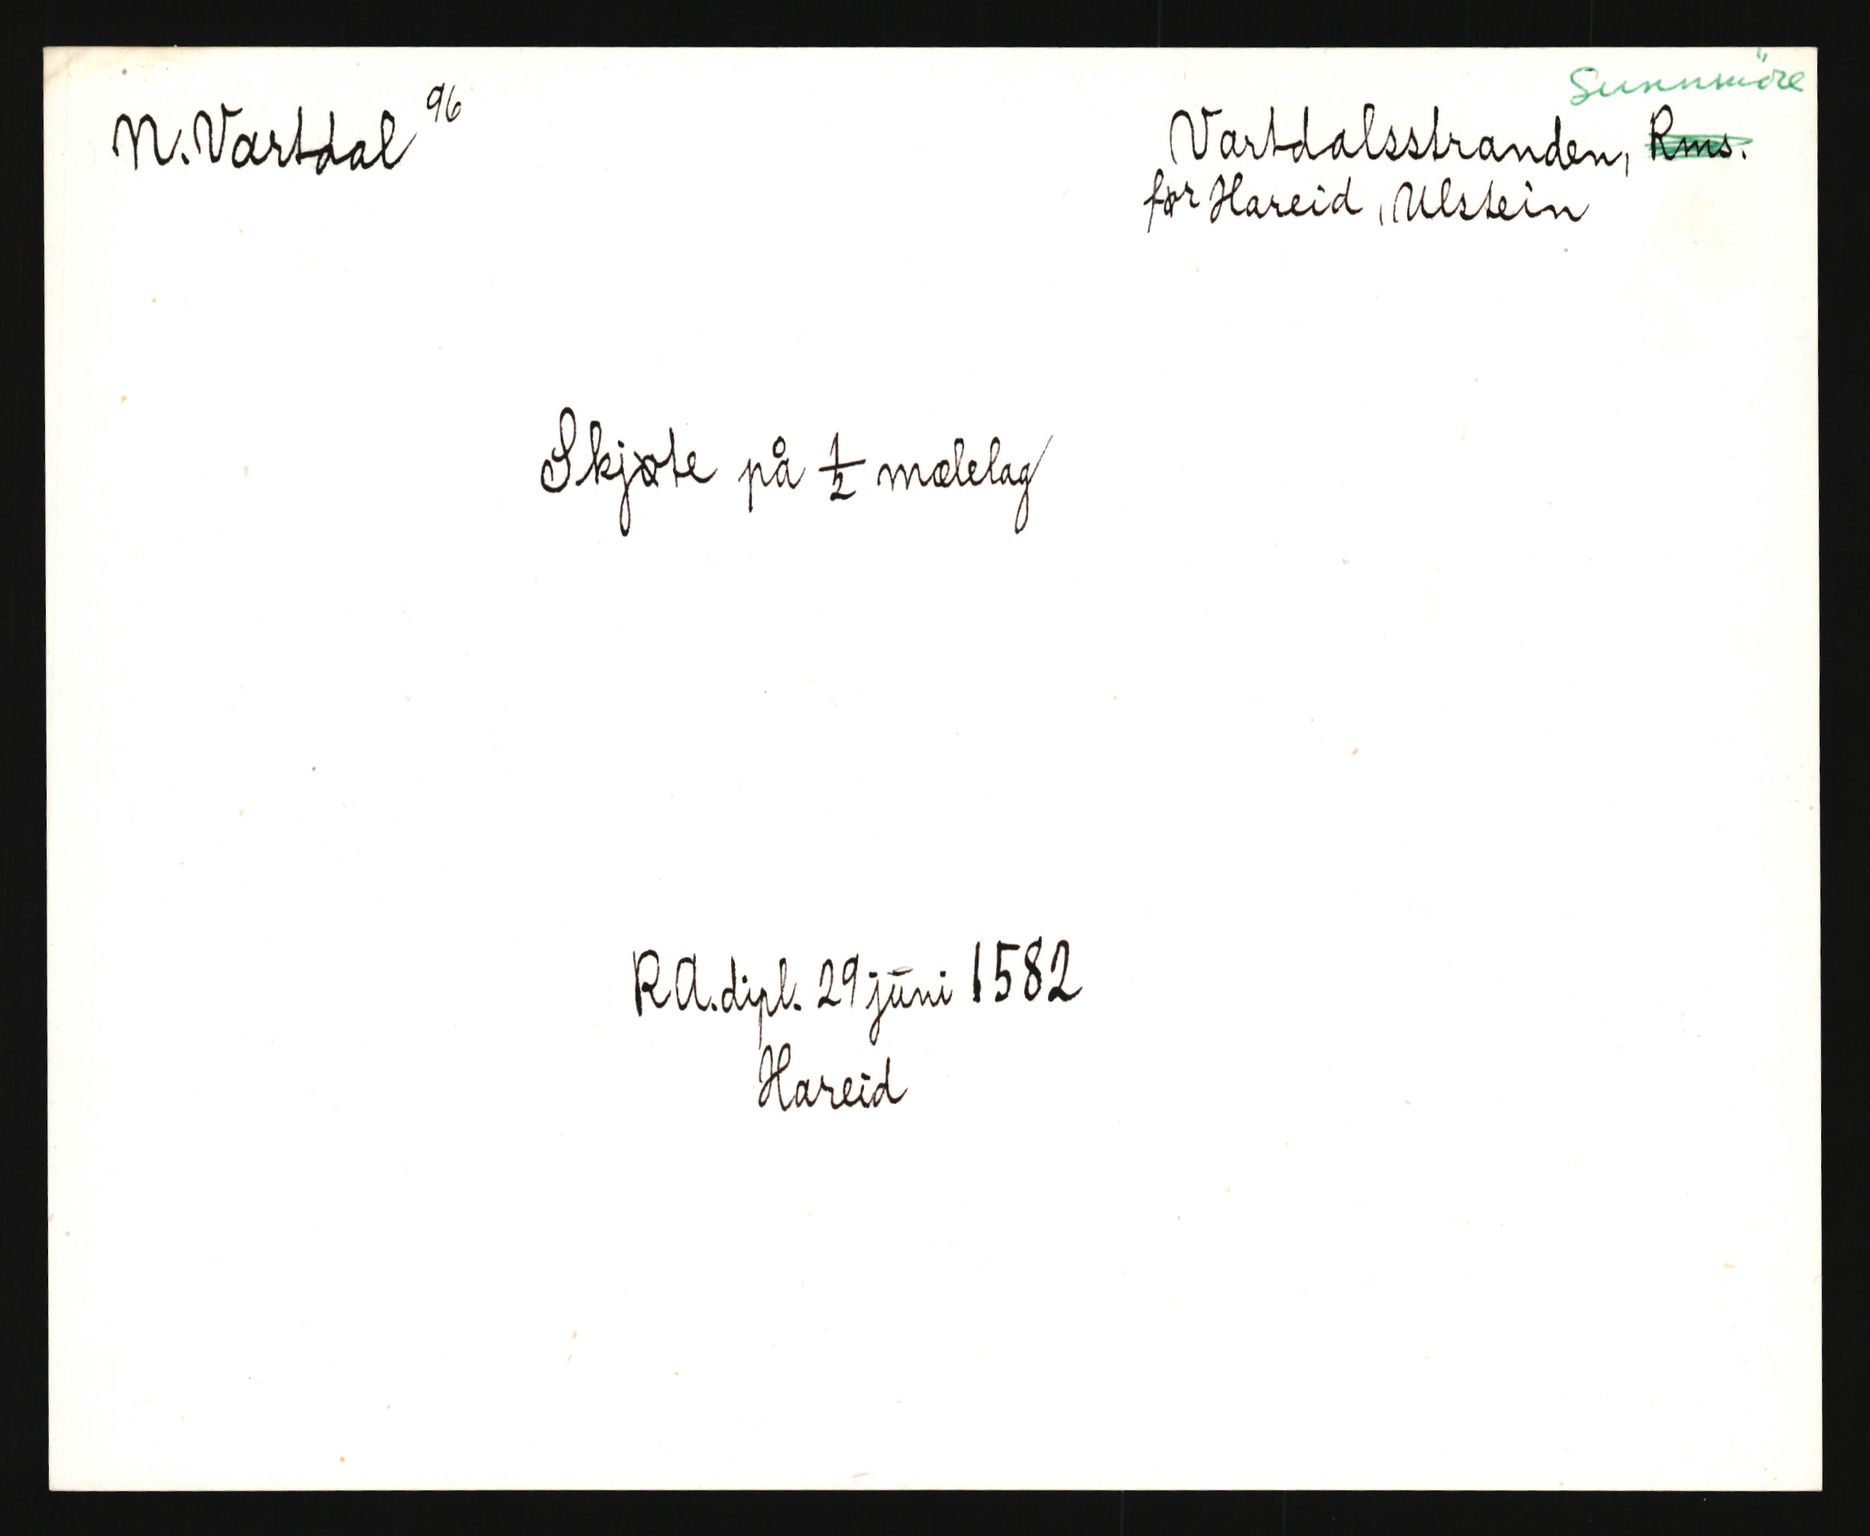 Sunnmöre
N. Vartdal 96
Vartdalsstranden, Rms.
før Hareid, Ulstein
Skjøte på 1/2 mælelag
RA. dipl. 29 juni 1582
Hareid